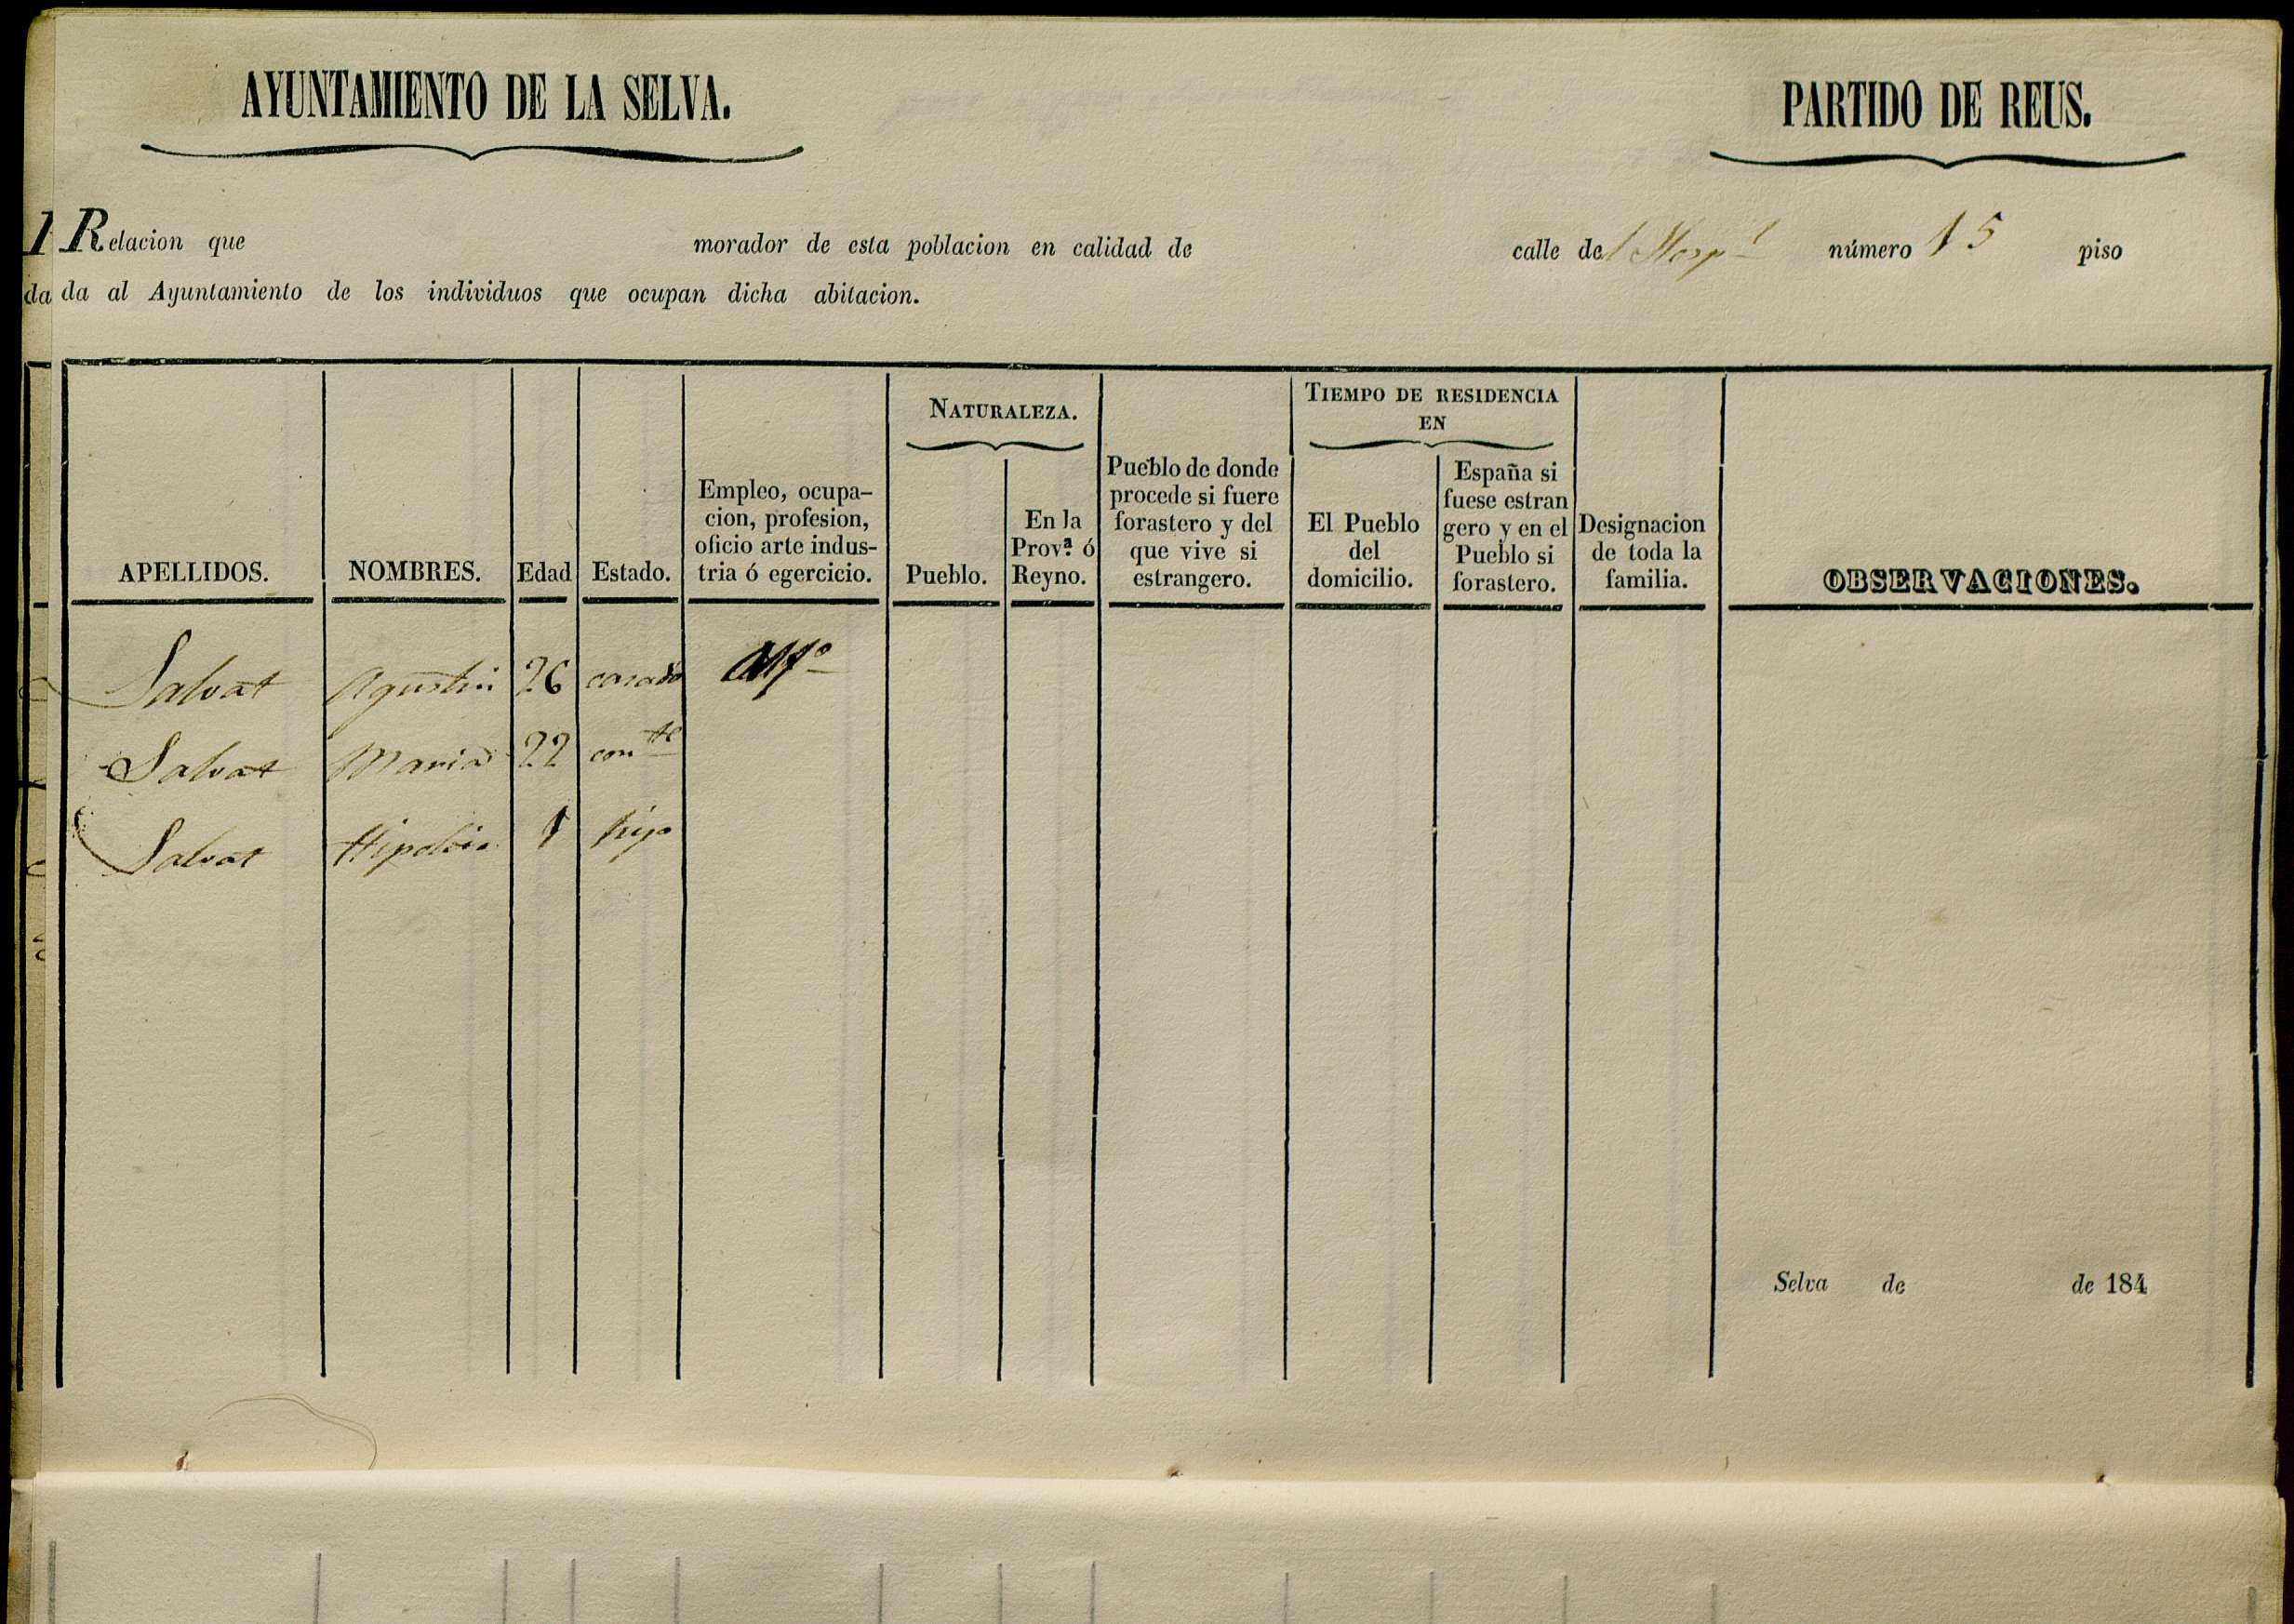 AYUNTAMIENTO DE LA SELVA.
PARTIDO DE REUS.
Relacion que morador de esta poblacion en calidad de calle del Hosp.l número 15 piso
da al Ayuntamiento de los individuos que ocupan dicha abitacion.
APELLIDOS.
NOMBRES.
Edad
Estado.
Empleo, ocupa-
cion, profesion,
oficio arte indus-
tria ó egercicio.
NATURALEZA.
Pueblo.
En la
Prov.ª ó
Reyno.
Pueblo de donde
procede si fuere
forastero y del
que vive si
estrangero.
TIEMPO DE RESIDENCIA
EN
El Pueblo
del
domicilio.
España si
fuese estran
gero y en el
Pueblo si
forastero.
Designacion
de toda la
familia.
OBSERVACIONES.
Salvat Agustin 26 casado
Salvat Maria 22 con.te
Salvat 1 hijo
Selva de de 184